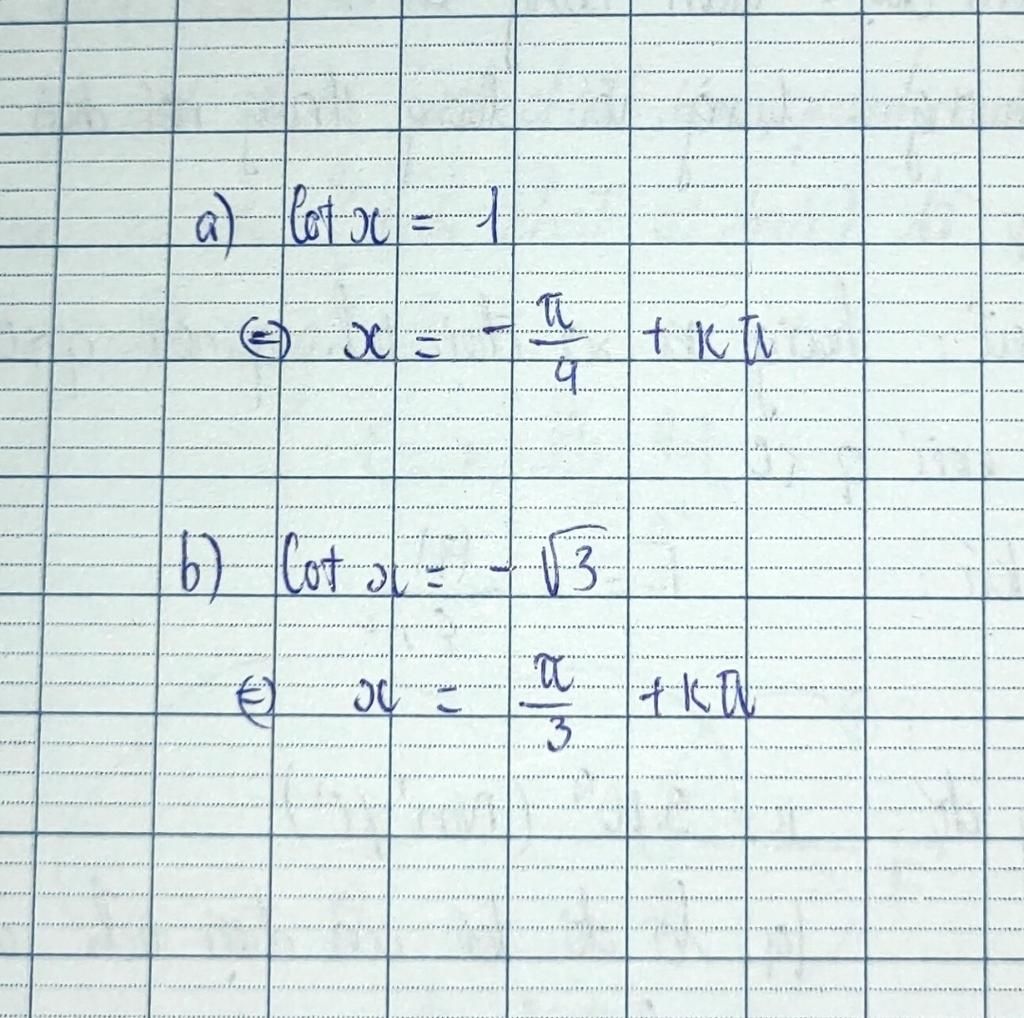 a) Cot x = 1
⇔ x = - π/4 + kπ
b) Cot x = - √3
⇔ x = π/3 + kπ